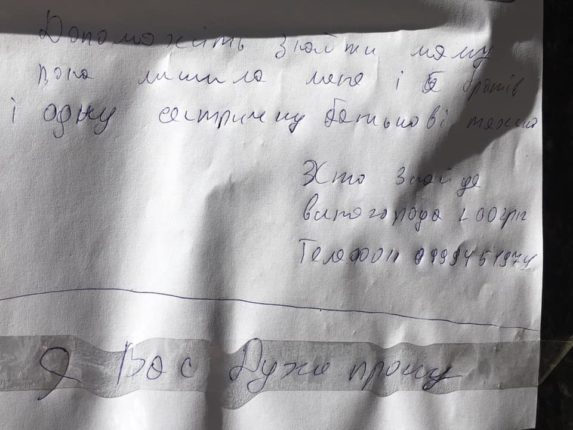 Допоможіть знайти маму
вона лишила мене і 6 братів
і одну сестричку батькові тяжко
Хто знайде
винагорода 200грн
Телефон 0999451974
Я Вас Дуже прошу